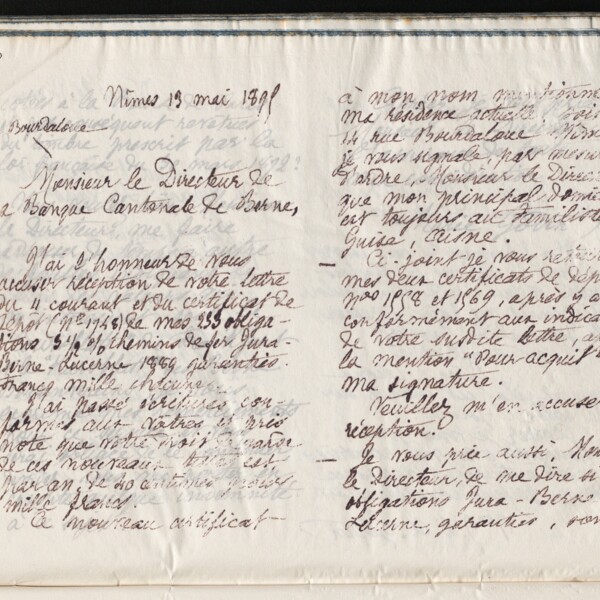 Nîmes 13 mai 1895
Bourdaloue
Monsieur le Directeur de
la Banque Cantonale de Berne,
J'ai l'honneur de vous
accuser réception de votre lettre
du 4 courant et du certificat de
dépôt (No 1748) de mes 233 obliga-
tions 3½ % chemins de fer Jura-
Berne-Lucerne 1889 garanties.
francs mille chacune.
J'ai passé écritures con-
formes aux vôtres et pris
note que votre droit de garde
de ces nouveaux titres est
par an, de 40 centimes pour
mille francs.
Ce nouveau certificat
à mon nom mentionne
ma résidence actuelle,
14 rue Bourdaloue Nîmes
je vous signale, par mesure
d'ordre, Monsieur le Direc
que mon principal domic
est toujours au Familist
Guise, Aisne.
Ci-joint je vous retour
mes deux certificats de dép
nos 1568 et 1569, après y a
conformément aux indica
de votre susdite lettre, a
la mention "Pour acquit"
ma signature.
Veuillez m'en accuse
réception.
Je vous prie aussi, Mon
le Directeur, de me dire si
obligations Jura-Berne
Lucerne, garanties, son